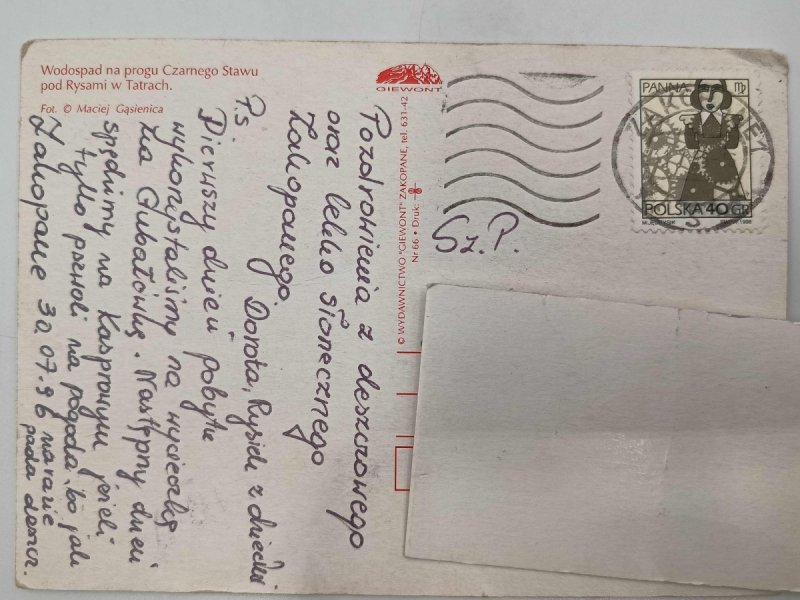 Wodospad na progu Czarnego Stawu
pod Rysami w Tatrach.
Fot. © Maciej Gąsienica
GIEWONT
Pozdrowienia z deszczowego
oraz lekko słonecznego
Zakopanego.
Dorota, Rysiek z dziećmi
P.s
Pierwszy dzień pobytu
wykorzystaliśmy na wycieczkę
na Gubałówkę. Następny dzień
spędzimy na Kasprowym jeżeli
tylko pozwoli na pogoda, bo jak
Zakopane 30.07.96 narazie
pada deszcz.
© WYDAWNICTWO "GIEWONT" ZAKOPANE, tel. 631-42
Nr 66 • Druk:
Sz. P.
PANNA ♍
ZAKOPANE 1
POLSKA 40 GR